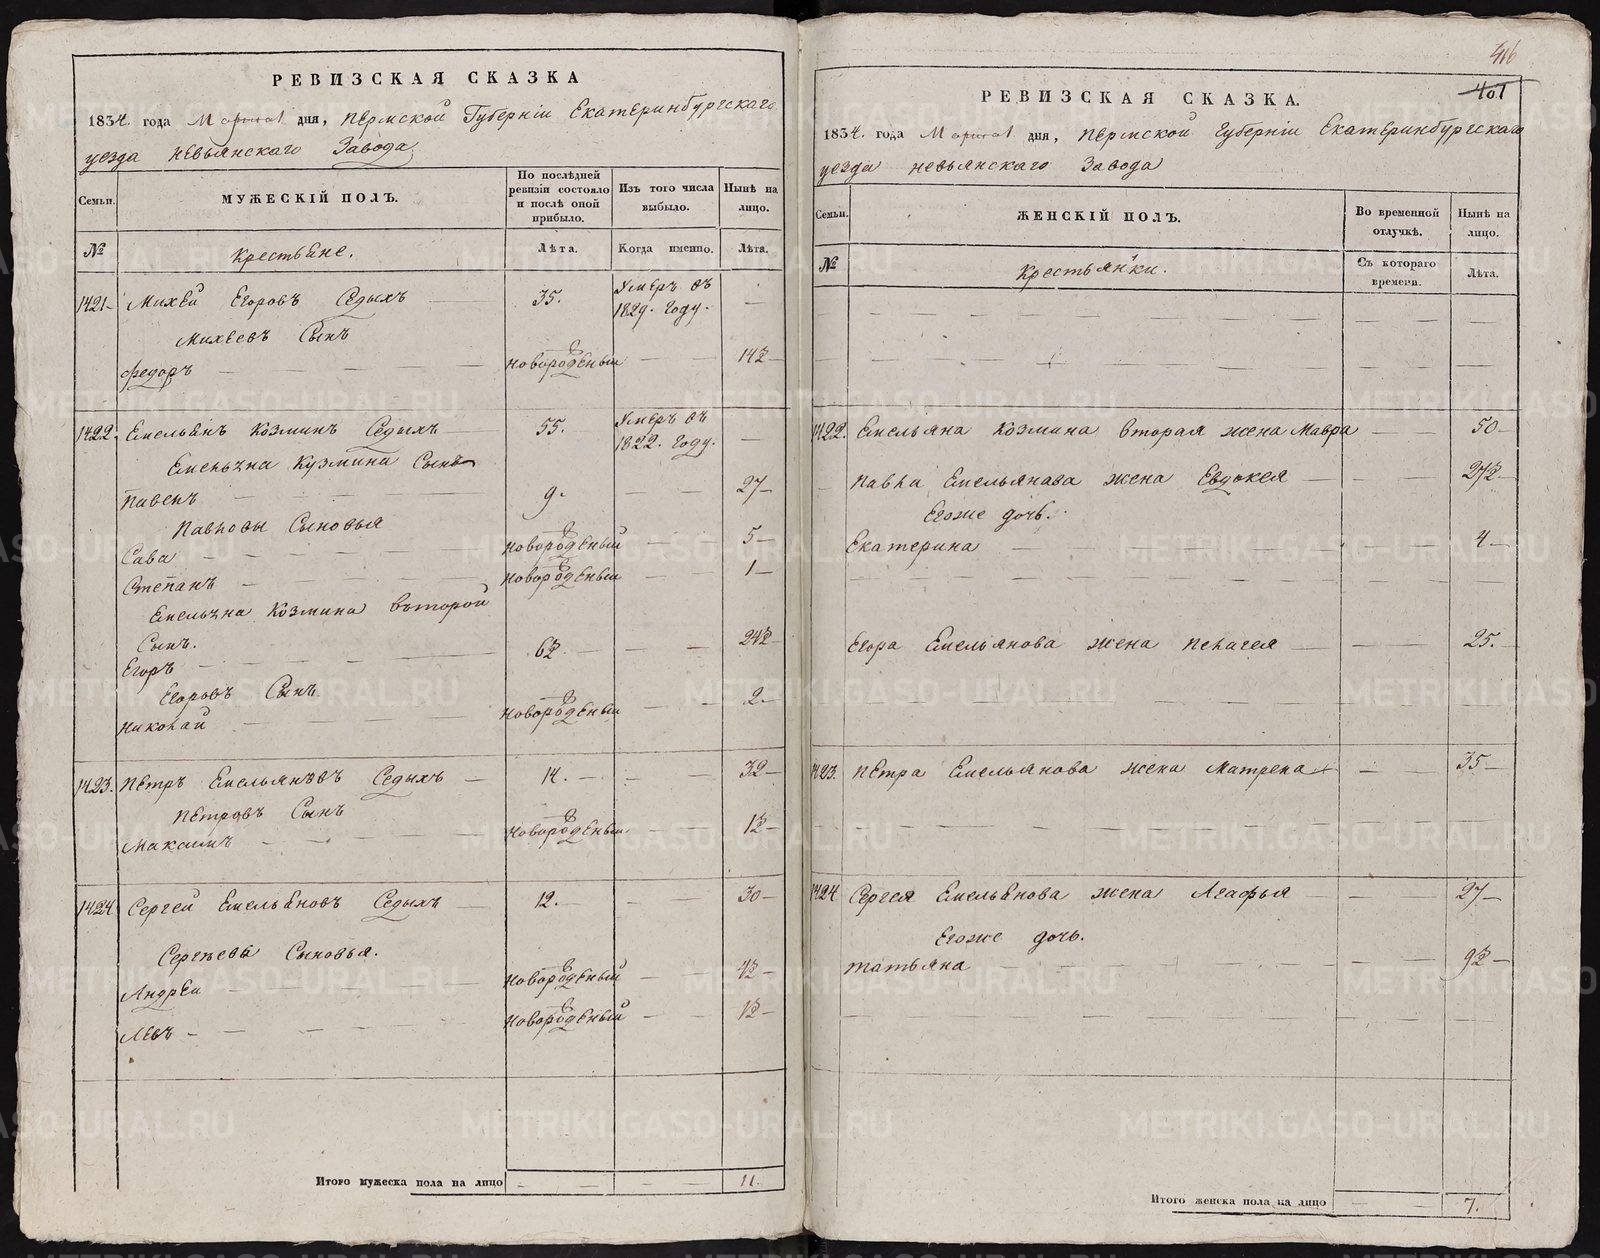 РЕВИЗСКАЯ СКАЗКА
1834. года Марта 1 дня, Пермской Губерніи Екатеринбургскаго
уезда Невьянскаго Завода
Семьи.
МУЖЕСКІЙ ПОЛЪ.
По послѣдней ревизіи состояло и послѣ оной прибыло.
Изъ того числа выбыло.
Нынѣ на лицо.
№
Крестьяне.
Лѣта.
Когда именно.
Лѣта.
1421 Михей Егоровъ Седыхъ 35. Умеръ въ 1829. Году. —
Михеевъ Сынъ
Федоръ — Новорожденный — 14½
1422. Емельянъ Козминъ Седыхъ 55. Умеръ въ 1822. Году. —
Емельяна Кузмина Сынъ
Павелъ — 9. — 27
Павловы Сыновья
Сава — Новорожденный — 5
Степанъ — Новорожденный — 1
Емельяна Козмина второй
Сынъ.
Егоръ — 6½ — 24½
Егоровъ Сынъ
Николай — Новорожденный — 2
1423. Петръ Емельяновъ Седыхъ — 14. — 32
Петровъ Сынъ
Максимъ — Новорожденный — 1½
1424 Сергей Емельяновъ Седыхъ — 12. — 30
Сергеевы Сыновья.
Андрей — Новорожденный — 4½
Левъ — Новорожденный — 1½
Итого мужеска пола на лицо — 11.
416
401
РЕВИЗСКАЯ СКАЗКА.
1834. года Марта 1 дня, Пермской Губерніи Екатеринбургскаго
уезда Невьянскаго Завода
Семьи.
ЖЕНСКІЙ ПОЛЪ.
Во временной отлучкѣ.
Нынѣ на лицо.
№
Крестьянки.
Съ котораго времени.
Лѣта.
1422. Емельяна Козмина вторая жена Мавра — 50
Павла Емельянова жена Евдокея — 27½
Егоже дочь.
Екатерина — 4
Егора Емельянова жена Пелагея — 25.
1423. Петра Емельянова жена Матрена — 35
1424 Сергея Емельянова жена Агафья — 27
Егоже дочь.
Татьяна — 9½
Итого женска пола на лицо — 7.
METRIKI.GASO-URAL.RU